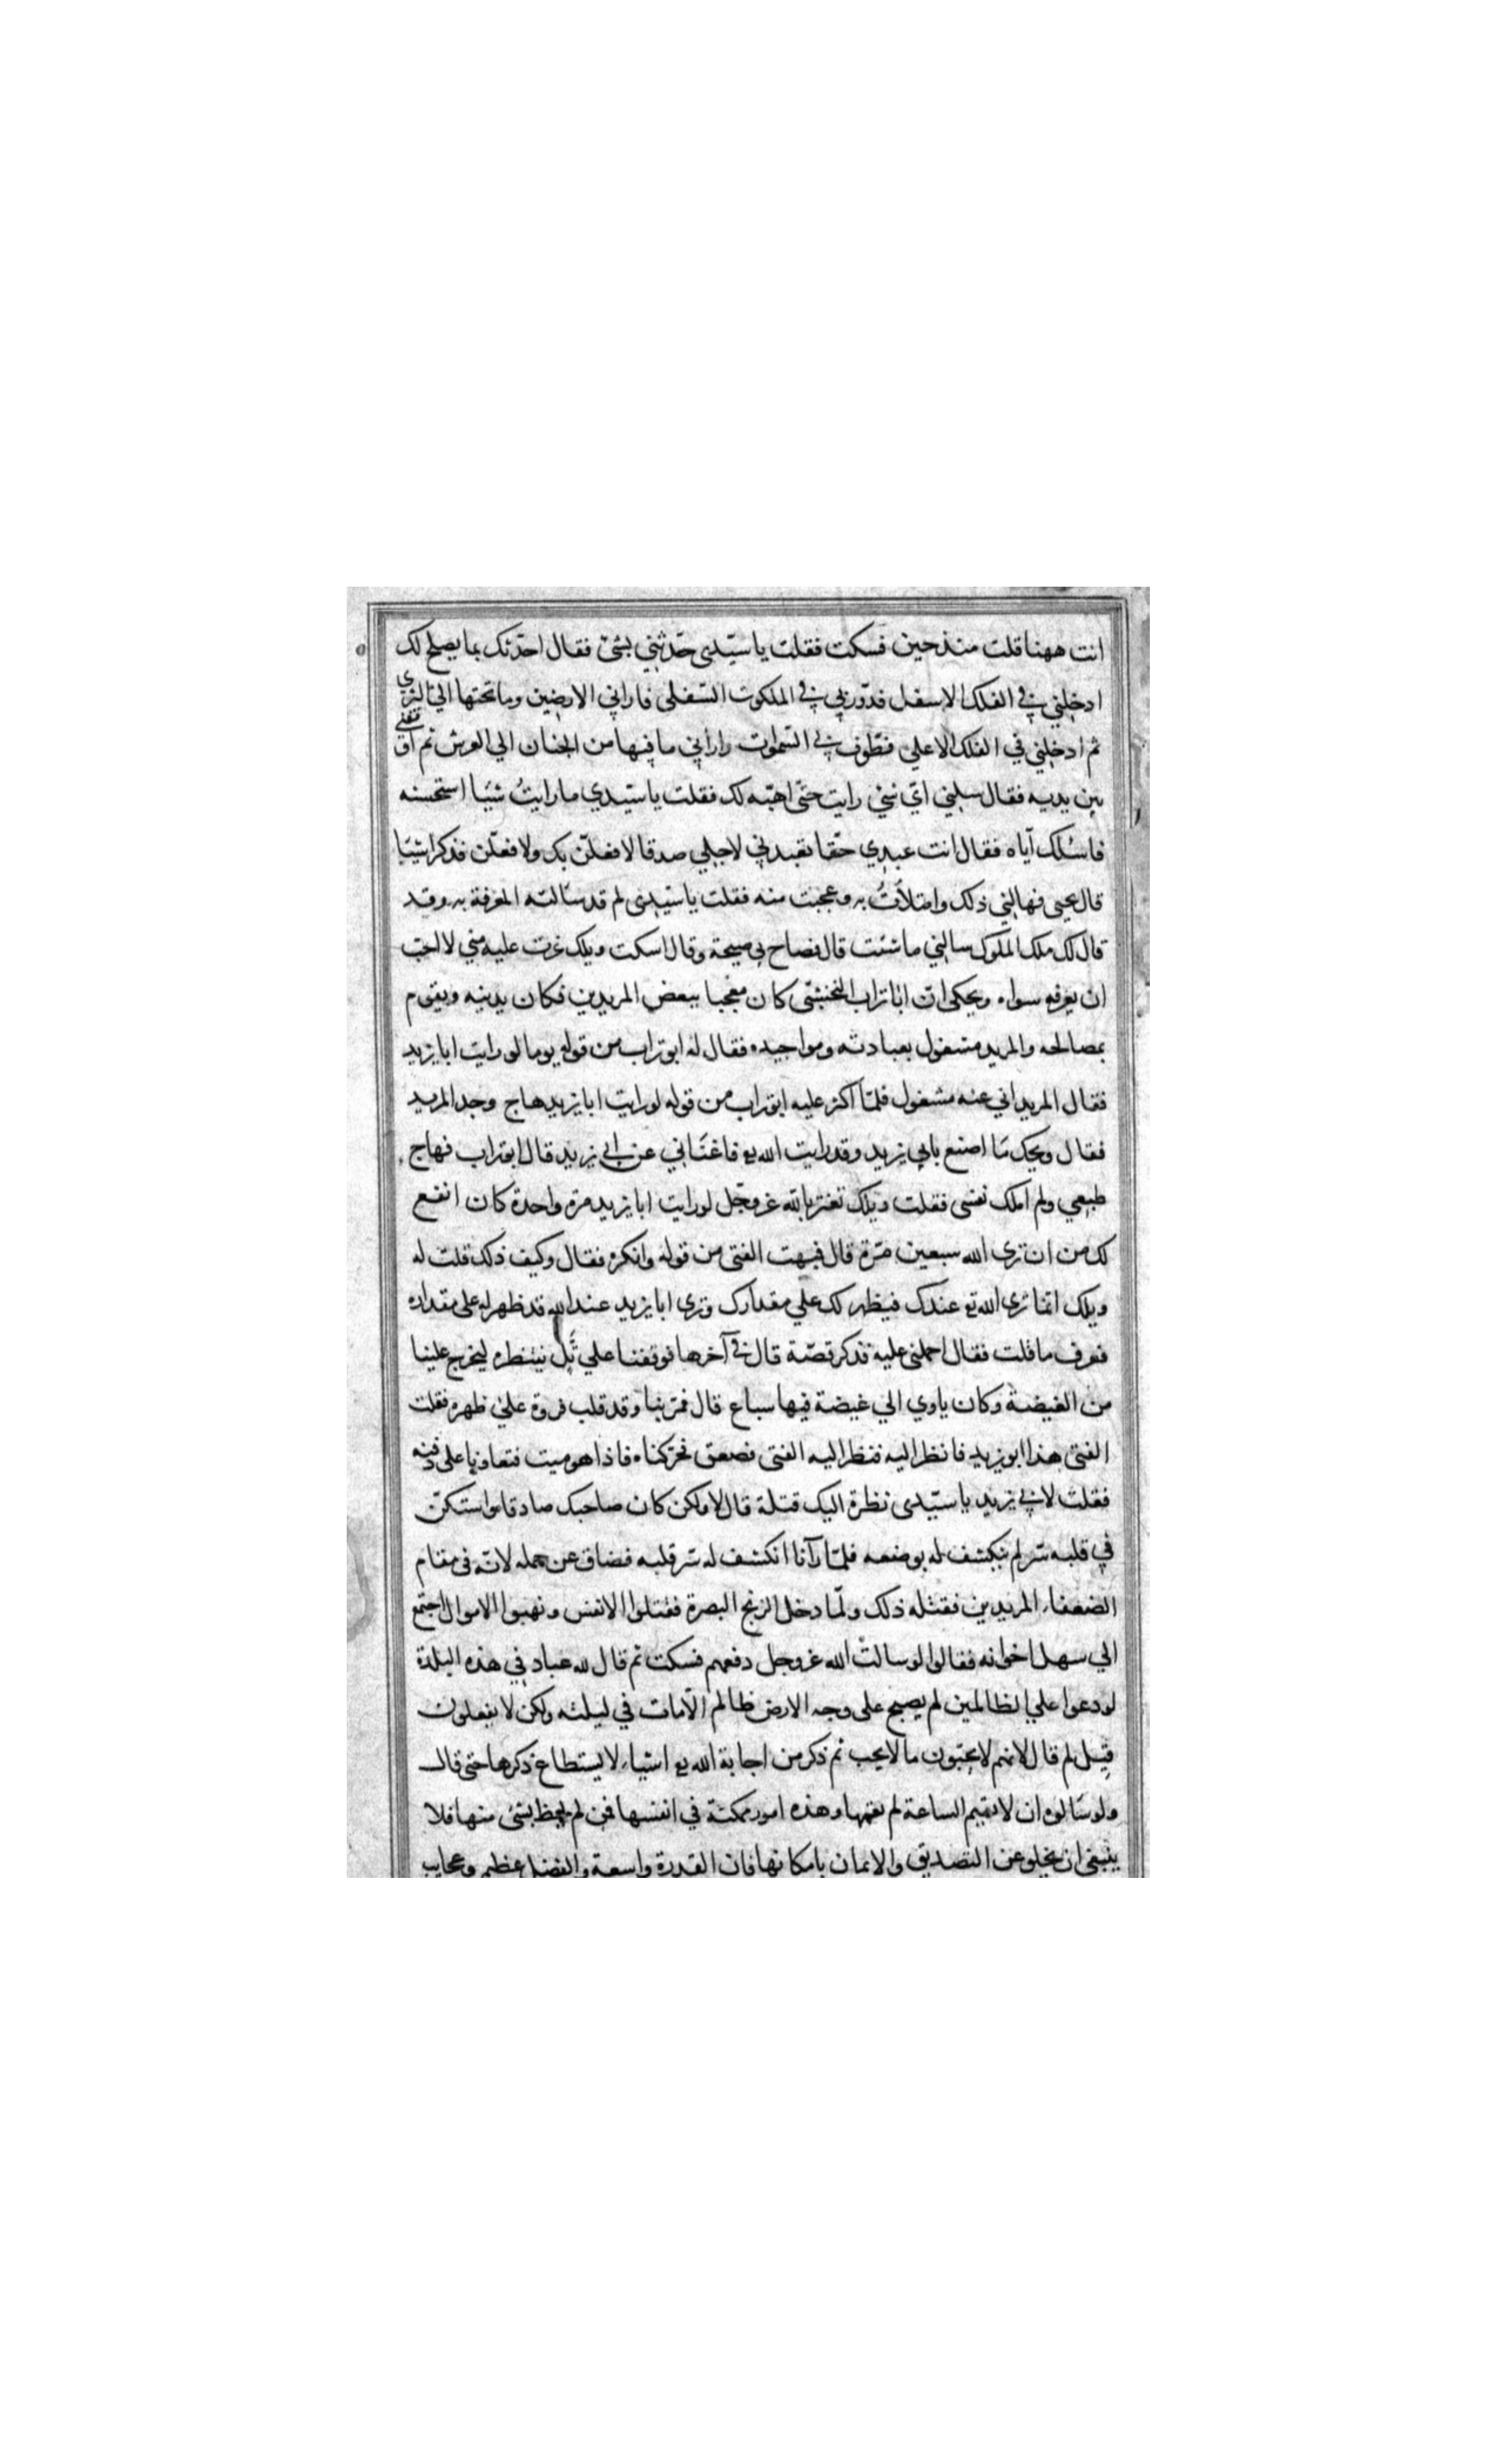 انت ههنا قلت منذ حين فسكت فقلت يا سيّدى حدّثنى بشئ فقال احدّثك بما يصلح لك
ادخلنى فى الفلك الاسفل فدوّرنى فى الملكوت السّفلى فارانى الارضين وما تحتها الى الثرى
ثم ادخلني في الفلك الاعلى فطوّف بى السّموات وارانى ما فيها من الجنان الي العرش ثم اوقفنى
بين يديه فقال سلنى اىّ شئ رايت حتّى اهبه لك فقلت يا سيّدي ما رايتُ شيئا استحسنه
فاسئلك ايّاه فقال انت عبدى حقّا تعبدنى لاجلى صدقا لافعلنّ بك ولافعلّن فذكر اشيئا
قال يحيى فهالنى ذلك وامتلأتُ به وعجبت منه فقلت يا سيّدى لم قد سألته المعرفة به وقد
قال لك ملك الملوك سالنى ما شئت قال فصاح بى صيحة وقال اسكت ويلك غرت عليه منى لا احبّ
ان يعرفه سواه ويحكى انّ ابا تراب النخشبّى كان معجبا ببعض المريدين فكان يدينه ويقوم
بمصالحه والمريد مشغول بعبادته ومواجيده فقال له ابو تراب من قوله يوما لو رايت ابا يزيد
فقال المريد انى عنه مشغول فلمّا اكثر عليه ابو تراب من قوله لو رايت ابا يزيد هاج وجد المريد
فقال ويحك مَا اصنع بابى يزيد وقد رايت الله تع فاغنَانى عن ابى يزيد قال ابو تراب فهاج
طبعي ولم املك نفسى فقلت ويلك تغتر بالله عزوجّل لو رايت ابا يزيد مرة واحدة كان انفع
لك من ان ترى الله سبعين مّرة قال فبهت الفتى من قوله وانكره فقال وكيف ذلك قلت له
ويلك انمّا ترى الله تع عندك فيظهر لك علي مقدارك وترى ابا يزيد عند الله قد ظهر له على مقداره
فعرف ما قلت فقال احملنى عليه فذكر قصّة قال فى آخرها فوقفنا علي تَّل ننتظره ليخرج علينا
من الغيضة وكان ياوي الي غيضة فيها سباع قال فمّر بنا وقد قلب فروة على ظهره فقلت
الفتى هذا ابو يزيد فانظر اليه فنظر اليه الفتى فصعق فحرّكناه فاذا هو ميت فتعاونا على دفنه
فقلت لابى يزيد يا سيّدى نظرة اليك قتلة قال لا ولكن كان صاحبك صادقا واستكنّ
في قلبه سّر لم ينكشف له بوضعه فلمّا رآنا انكشف له سّر قلبه فضاق عن حمله لانّه فى مقام
الضعفاء المريدين فقتله ذلك ولمّا دخل الزنج البصرة فقتلوا الانفس ونهبوا الاموال اجتمع
الي سهل اخوانه فقالوا لو سالت الله عزوجل دفعهم فسكت ثم قال لله عباد في هذه البلدة
لو دعوا علي الظالمين لم يصبح على وجه الارض ظالم الّا مات في ليلته ولكن لا يفعلون
قيل لم قال لانهم لا يحبّون ما لا يحب ثم ذكر من اجابة الله تع اشياء لا يستطاع ذكرها حتى قال
ولو سَالوه ان لا يقيم الساعة لم يقمها وهذه امور ممكنة في انفسها فمن لم يحظ بشئ منها فلا
ينبغى ان يخلو عن التصديق والايمان بامكانها فان القدرة واسعة والفضل عظيم وعجايب